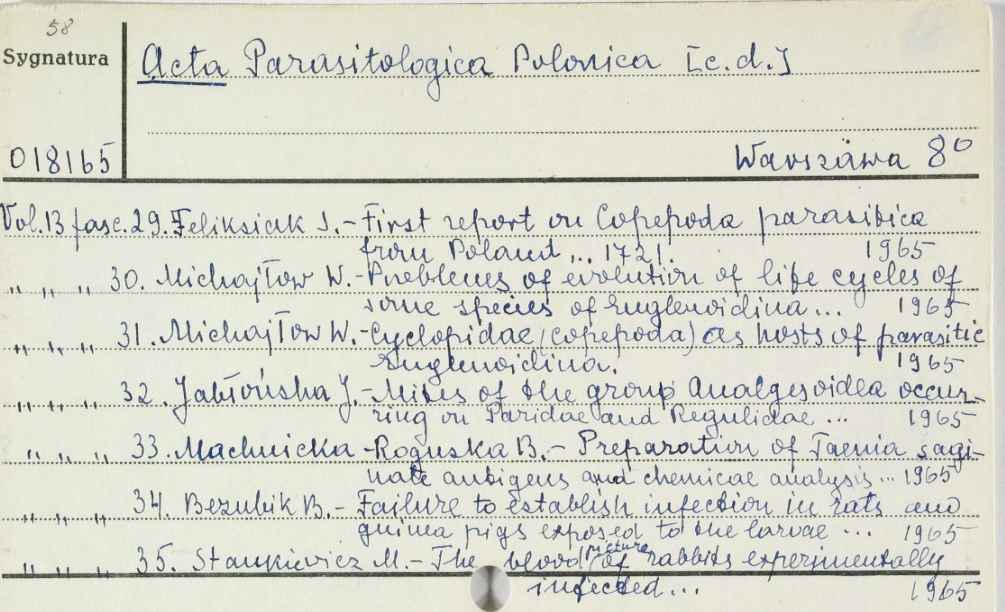 58
Sygnatura
Acta Parasitologica Polonica [c.d.]
018165
Warszawa 8º
Vol. 13 fasc. 29. Feliksiak J. - First report on Copepoda parasitica
from Poland ... 172! 1965
" " " 30. Michajłow W. - Problems of evolution of life cycles of
some species of Euglenoidina ... 1965
" " " 31. Michajłow W. - Cyclopidae (copepoda) as hosts of parasitic
Euglenoidina. 1965
" " " 32. Jabłońska J. - Mites of the group Analgesoidea occur-
ring on Paridae and Regulidae ... 1965
" " " 33. Machnicka - Roguska B. - Preparation of Taenia sagi-
nate antigens and chemical analysis ... 1965
" " " 34. Bezubik B. - Failure to establish infection in rats and
guinea pigs exposed to the larvae ... 1965
" " " 35. Stankiewicz M. - The blood picture of rabbits experimentally
infected ... 1965